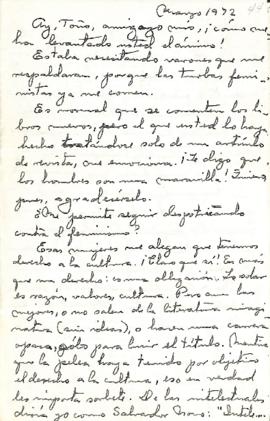 Marzo 1972
Ay, Toño, amigazo mío, ¡cómo me
ha levantado usted el ánimo!
Estaba necesitando varones que me
respaldaran, porque las turbas femi-
nistas ya me comen.
Es normal que se comenten los li-
bros nuevos, pero el que usted lo haya
hecho tratándose solo de un artículo
de revista, me emociona. ¡Le digo que
los hombres son una maravilla!
pues, agradecérselo.
¿Me permite seguir despotricando
contra el feminismo?
Esas mujeres me alegan que tenemos
derecho a la cultura. ¡Claro que sí! Es más
que un derecho: es una obligación.
es razón, valores, cultura. Pero aun las
mejores, o no salen de la literatura
(sin ideas), o hacen una carrera
sólo para lucir el título. Mientras
que la pelea haya tenido por objetivo
el derecho a la cultura, eso en verdad
les importa sorbete. De las intelectuales
diría yo como Salvador Novo: